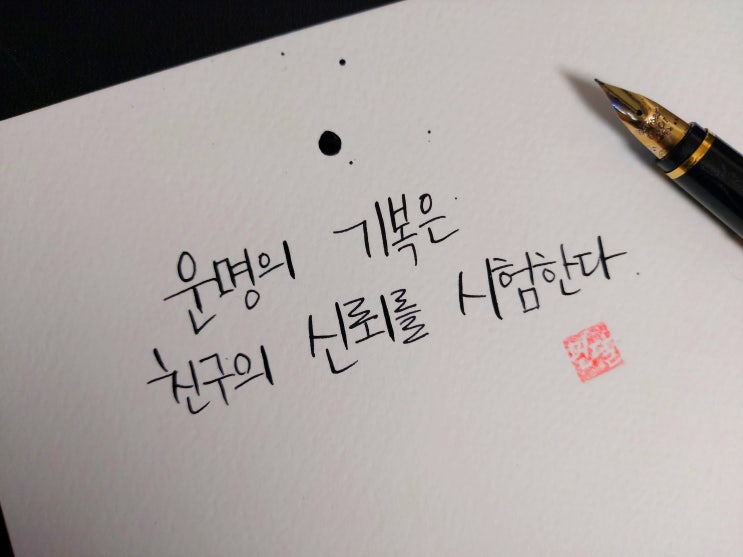 운명의 기복은
친구의 신뢰를 시험한다.